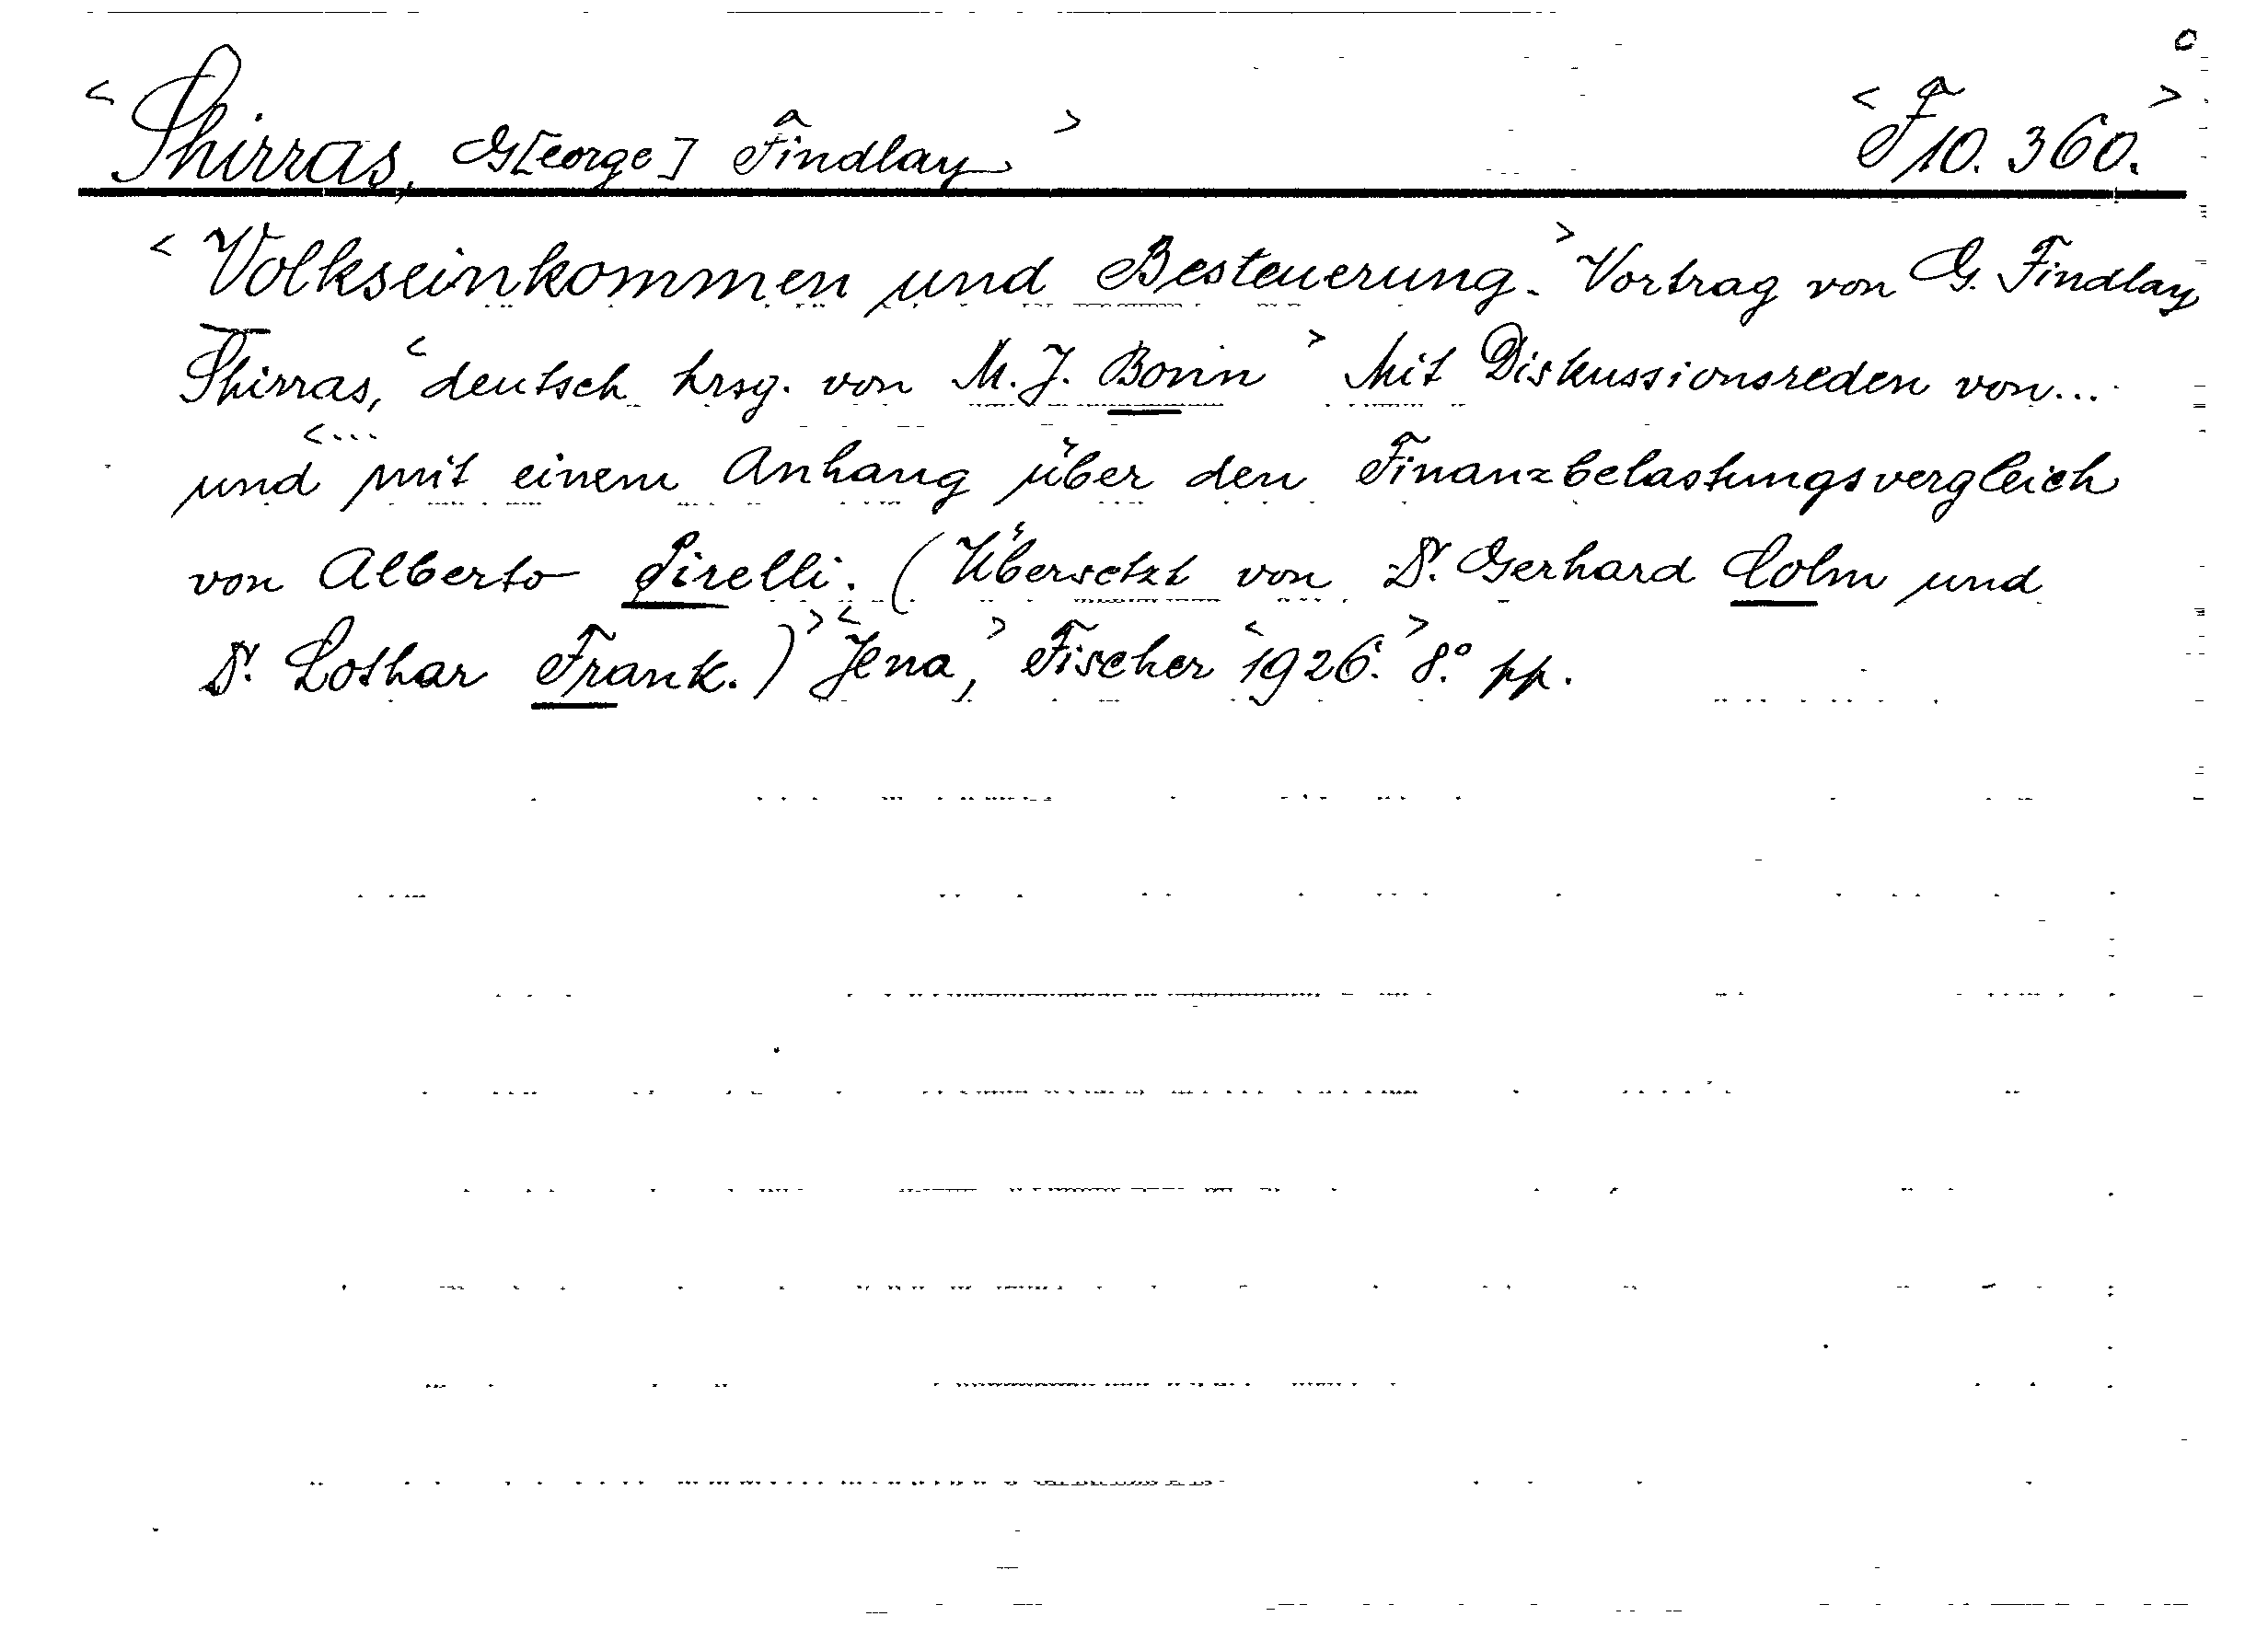 <Shirras, G[eorge] Findlay> <F 10.360.>
<Volkseinkommen und Besteuerung.> Vortrag von G. Findlay
Shirras, <deutsch hrsg. von M. J. Bonn> Mit Diskussionsreden von...
<... und mit einem Anhang über den Finanzbelastungsvergleich
von Alberto Pirelli. (Übersetzt von Dr. Gerhard Colm und
Dr. Lothar Frank.)> <Jena,> Fischer <1926.> 8.° pp.